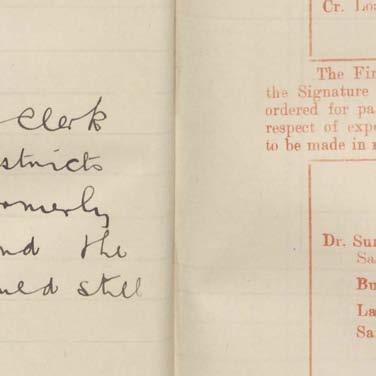 Clerk
stricts
ormerly
nd the
ned still
Cr. Loa
The Fir
the Signature
ordered for pa
respect of expe
to be made in r
Dr. Sun
Sa
Bu
La
Sa